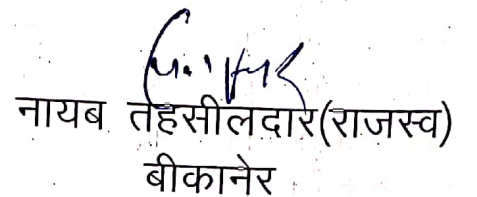 नायब तहसीलदार(राजस्व)
बीकानेर